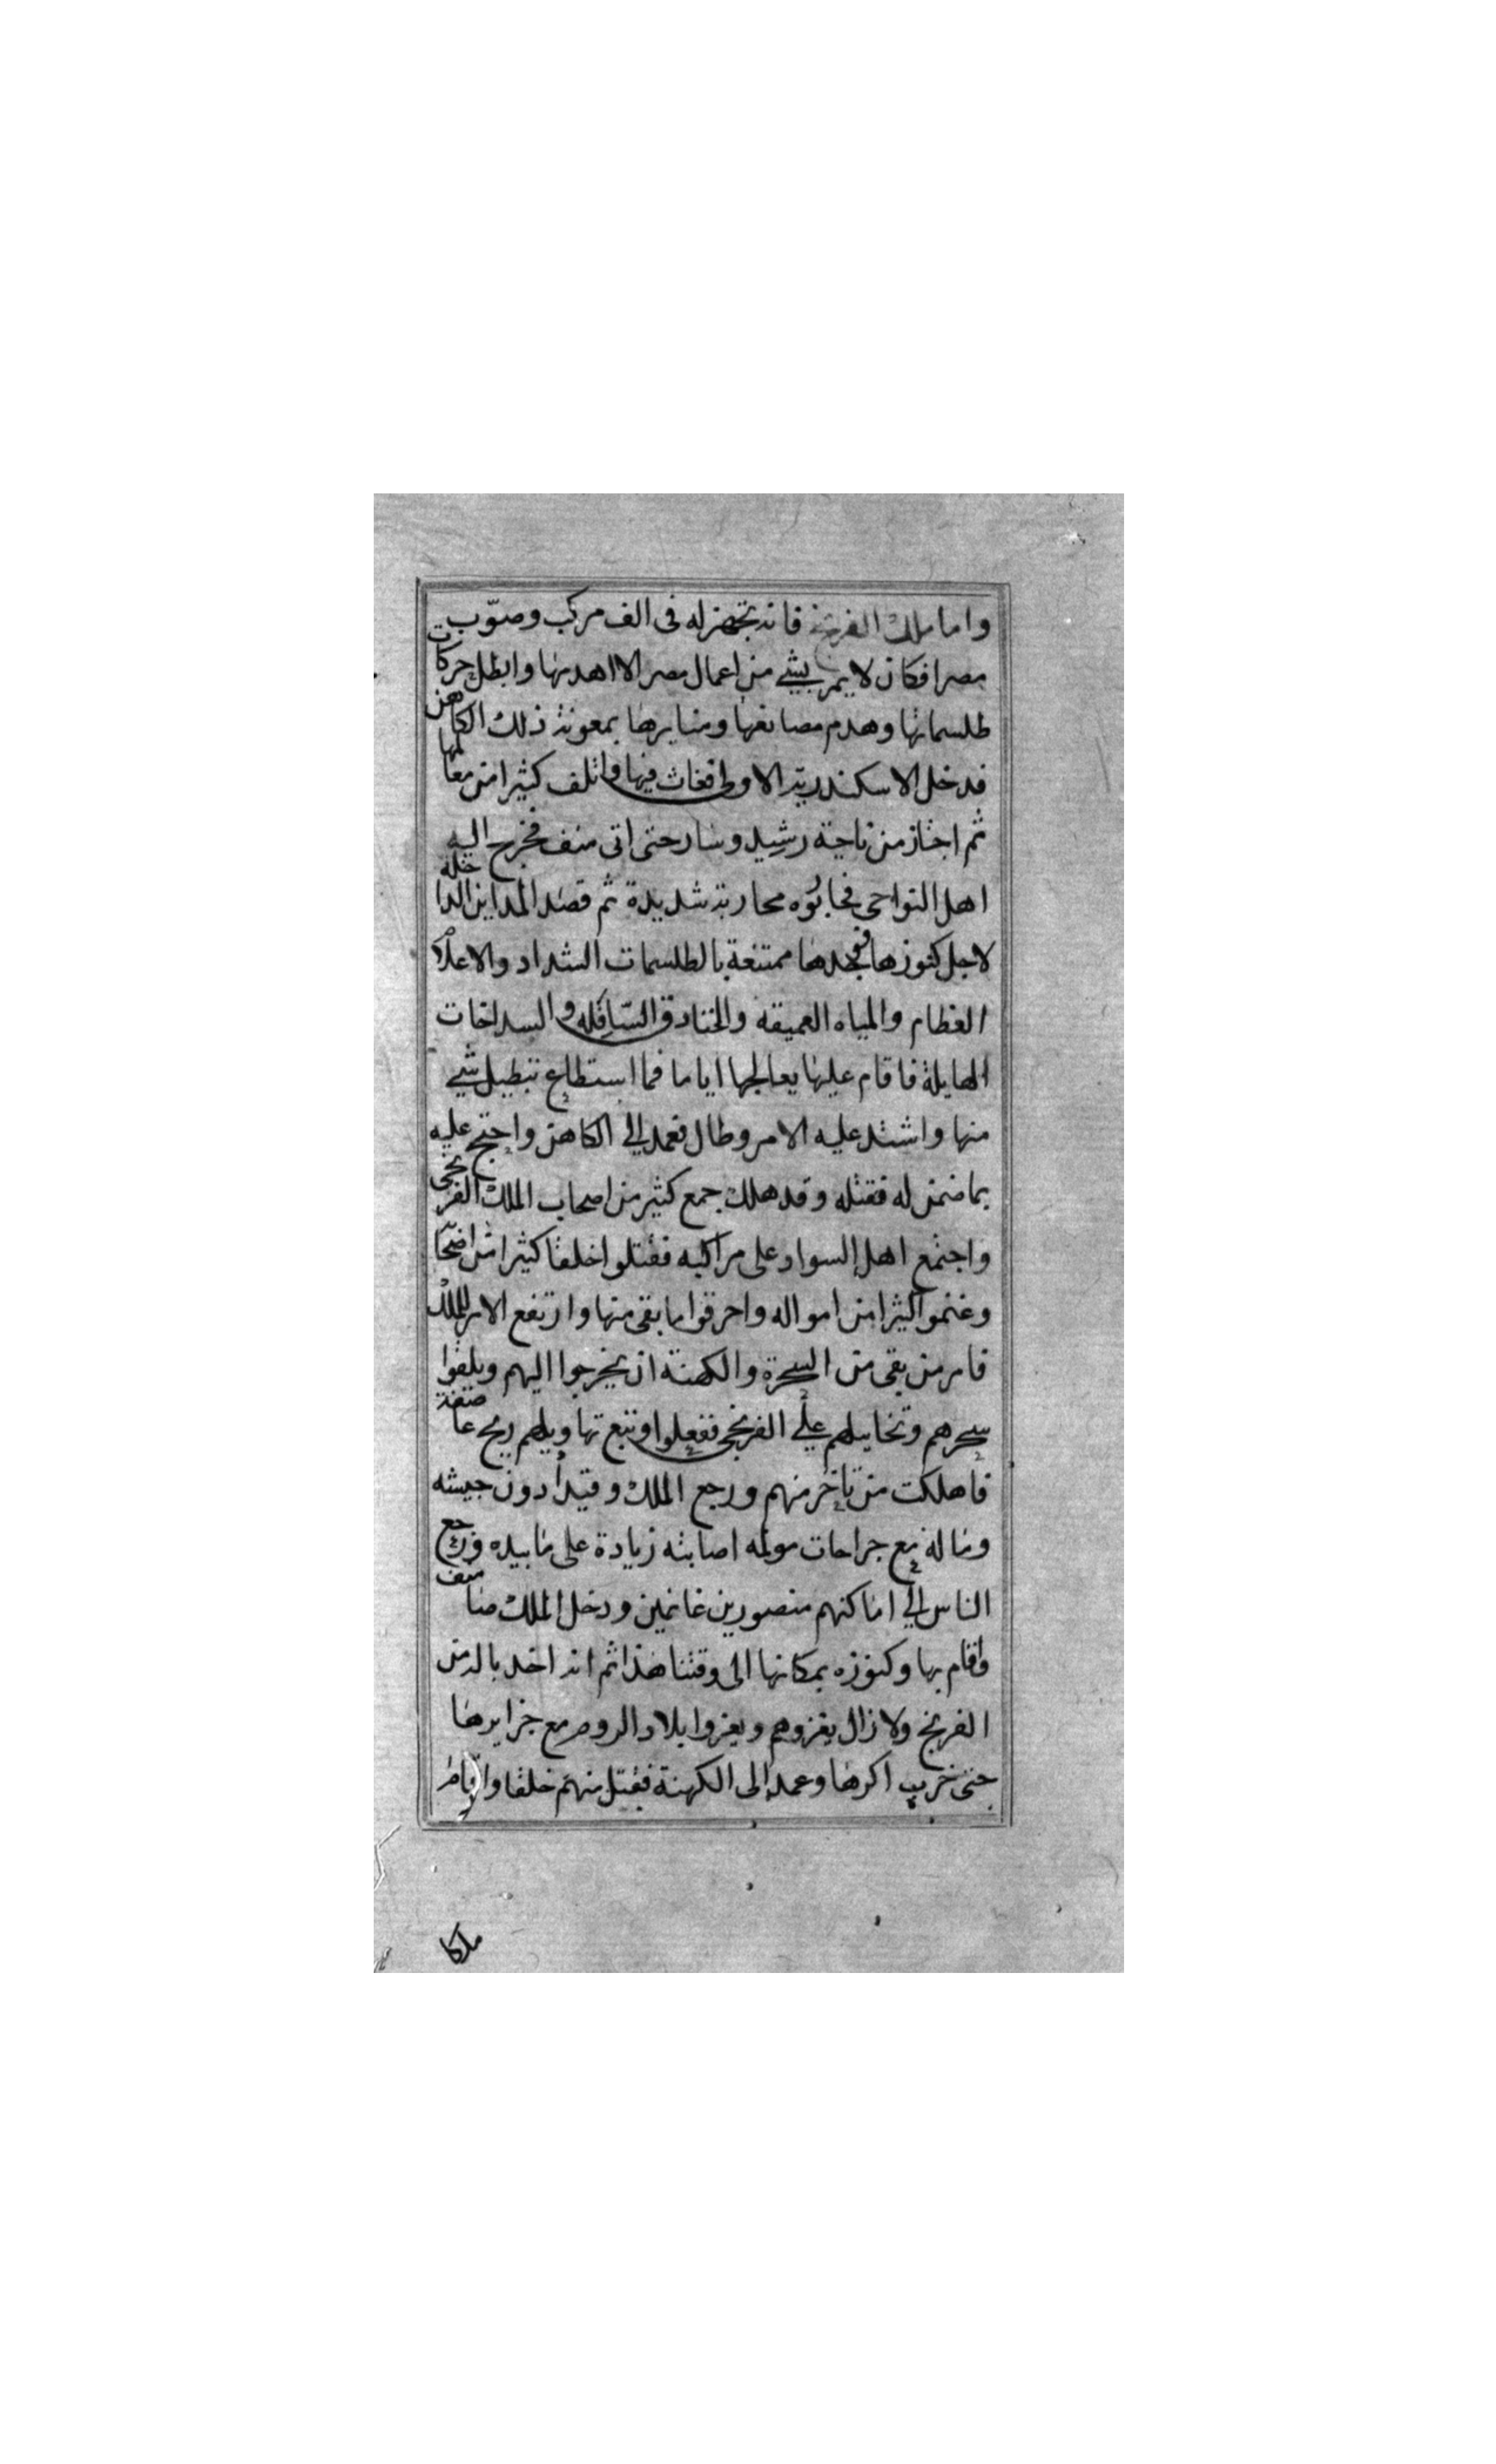 واما ملك الفرنجة فانه تجهز له فى الف مركب وصوّب
مصرا فكان لا يمر بشي من اعمال مصر الا اهدمها وابطل حركات
طلسماتها وهدم مصانعها ومنابرها بمعونة ذلك الكاهن
فدخل الاسكندرية الاولى فعاث فيها واتلف كثيرا من معالمها
ثم اجتاز من ناحية رشيد وسار حتى اتى منف فخرج اليه
اهل النواحى فحاربوه محاربة شديدة ثم قصد المداين الداخله
لاجل كنوزها فوجدها ممتنعة بالطلسمات الشداد والاعلام
العظام والمياه العميقه والخنادق السافله والسداخات
الهايلة فاقام عليها يعالجها اياما فما استطاع تبطيل شي
منها واشتد عليه الامر وطال فعمد الي الكاهن واحتج عليه
بما ضمن له فقتله وقد هلك جمع كثير من اصحاب الملك الفرنجى
واجتمع اهل السواد على مراكبه فقتلوا خلقا كثيرا من اصحابه
وغنموا كثيرا من امواله واحرقوا ما بقى منها وارتفع الامر للملك
فامر من بقى من السحرة والكهنة ان يخرجوا اليهم ويلقوا
سحرهم وتخاييلهم علي الفرنجى ففعلوا وتبع تهاويلهم ريح عاصفة
فاهلكت من تاخر منهم ورجع الملك وقيد ادون جيشه
وماله مع جراحات مولمه اصابته زيادة على ما بيده ورجع
الناس الي اماكنهم منصورين غانمين ودخل الملك منف
واقام بها وكنوزه بمكانها الى وقتنا هذا ثم انه اخد بالدمن
الفرنج ولا زال يغزوهم ويغزوا بلاد الروم مع جزايرها
حتى خرب اكرها وعمد الى الكهنة فقتل منهم خلقا واقام
ملكا